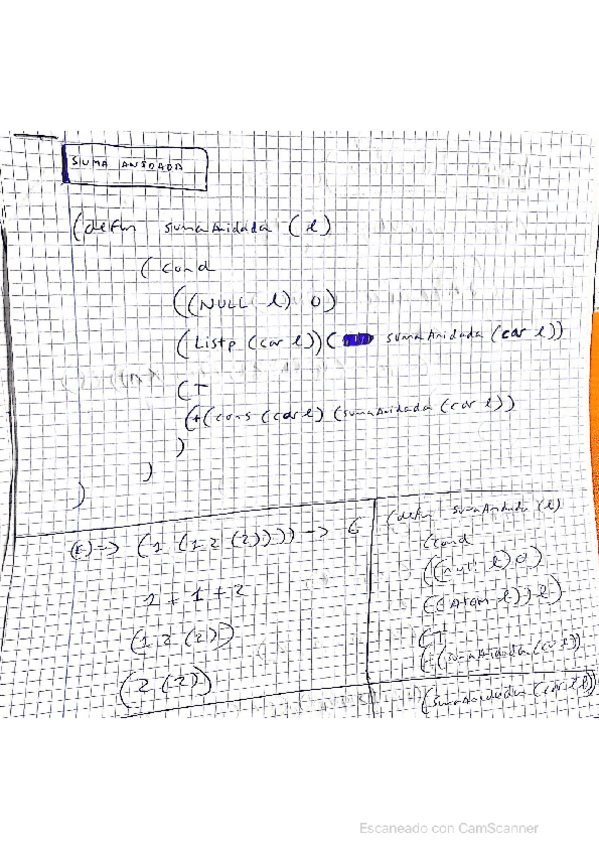 SUMA ANIDADA
(defun sumaAnidada (l)
(cond
((NULL l) 0)
(Listp (car l))( sumaAnidada (car l))
(T
(+(cons (car l) (sumaAnidada (cdr l))
)
)
)
(E)=> (1 (1 2 (2)))) -> 6
1 + 1 + 2
(1 2 (2))
(2 (2))
(defun sumaAnidada (l)
(cond
((null l) 0)
((Atom l)) l)
(T
(+(sumaAnidada (car l))
(sumaAnidada (cdr l))
Escaneado con CamScanner